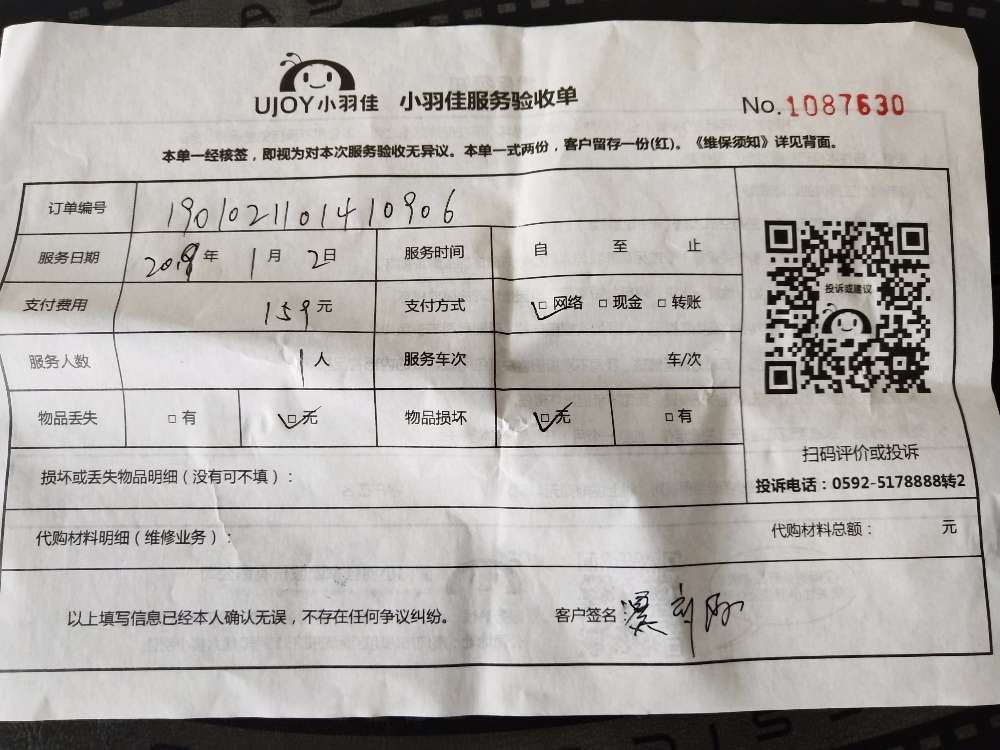 UJOY小羽佳 小羽佳服务验收单 No.1087630
本单一经核签，即视为对本次服务验收无异议。本单一式两份，客户留存一份(红)。《维保须知》详见背面。
订单编号 1901021101410906
服务日期 2019年 1月 2日 服务时间 自 至 止
支付费用 159元 支付方式 ☑网络 □现金 □转账
投诉或建议
服务人数 1人 服务车次 车/次
物品丢失 □有 ☑无 物品损坏 ☑无 □有
扫码评价或投诉
投诉电话：0592-5178888转2
损坏或丢失物品明细（没有可不填）：
代购材料明细（维修业务）： 代购材料总额： 元
以上填写信息已经本人确认无误，不存在任何争议纠纷。 客户签名